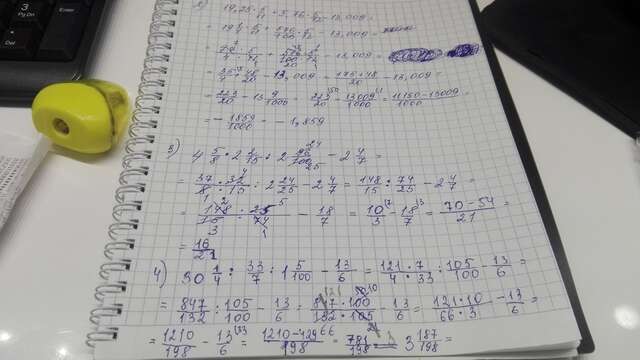 5
PgDn
Del
= 19 1/4 · 5/11 + 576/100 · 5/12 - 13,009 =
= 35/4 + 48/20 - 13,009 = 175+48/20 - 13,009 =
= 223/20 - 13 9/1000 = 223/20 - 13009/1000 = 11150-13009/1000
= - 1859/1000 = - 1,859
3) 4 5/8 : 2 2/15 : 2 96/100 - 2 4/7 =
= 37/8 · 32/15 : 2 24/25 - 2 4/7 = 148/15 : 74/25 - 2 4/7 =
= 148/15 · 25/74 - 18/7 = 10/3 - 18/7 = 70-54/21 =
= 16/21
4) 30 1/4 : 33/7 : 1 5/100 - 13/6 = 121·7/4·33 : 105/100 - 13/6 =
= 847/132 : 105/100 - 13/6 = 847·100/132·105 - 13/6 = 121·10/66·3 - 13/6 =
= 1210/198 - 13/6 = 1210-429/198 = 781/198 = 3 187/198 =